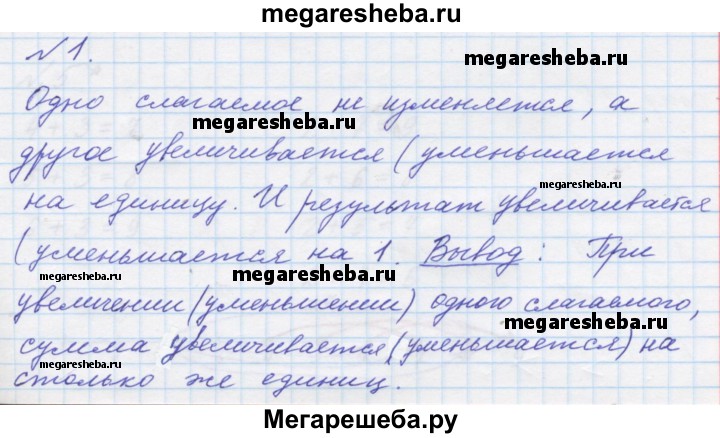 megaresheba.ru
№1.
megaresheba.ru
Одно слагаемое не изменяется, а
megaresheba.ru
другое увеличивается (уменьшается
megaresheba.ru
на единицу. И результат увеличивается
(уменьшается на 1. Вывод: При
megaresheba.ru
megaresheba.ru
увеличении (уменьшении) одного слагаемого,
megaresheba.ru
сумма увеличивается (уменьшается) на
megaresheba.ru
столько же единиц.
Мегарешеба.ру